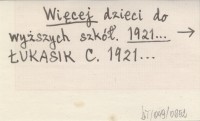 Więcej dzieci do
wyższych szkół. 1921... →
ŁUKASIK C. 1921...